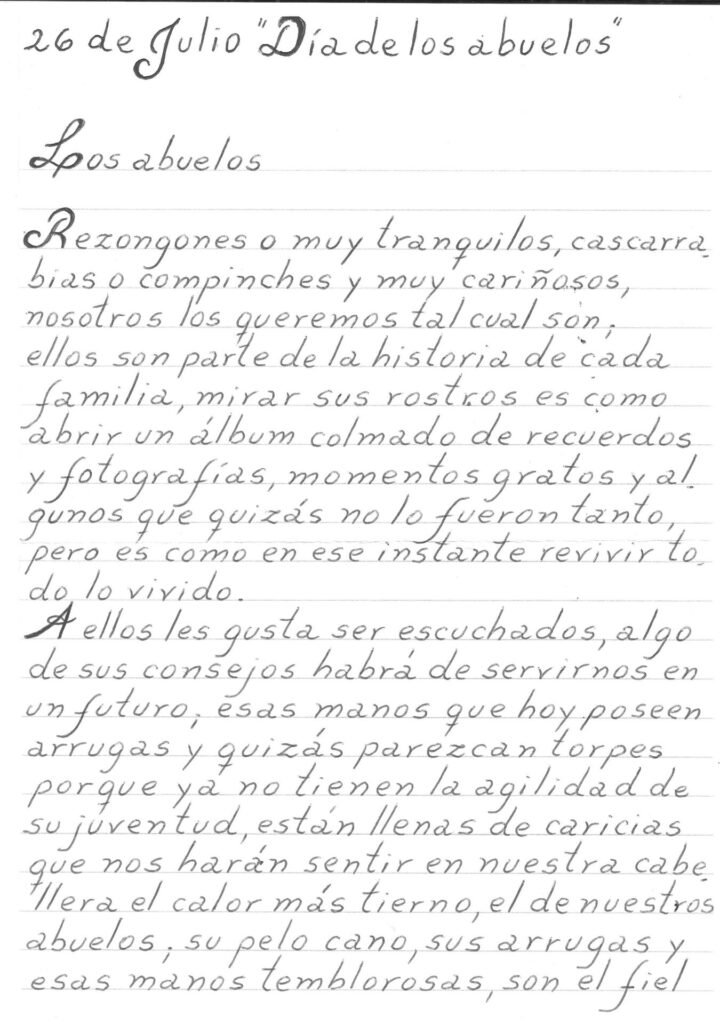 26 de Julio "Día de los abuelos"
Los abuelos
Rezongones o muy tranquilos, cascarra-
bias o compinches y muy cariñosos,
nosotros los queremos tal cual son;
ellos son parte de la historia de cada
familia, mirar sus rostros es como
abrir un álbum colmado de recuerdos
y fotografías, momentos gratos y al-
gunos que quizás no lo fueron tanto,
pero es como en ese instante revivir to-
do lo vivido.
A ellos les gusta ser escuchados, algo
de sus consejos habrá de servirnos en
un futuro; esas manos que hoy poseen
arrugas y quizás parezcan torpes
porque ya no tienen la agilidad de
su juventud, están llenas de caricias
que nos harán sentir en nuestra cabe-
llera el calor más tierno, el de nuestros
abuelos; su pelo cano, sus arrugas y
esas manos temblorosas, son el fiel